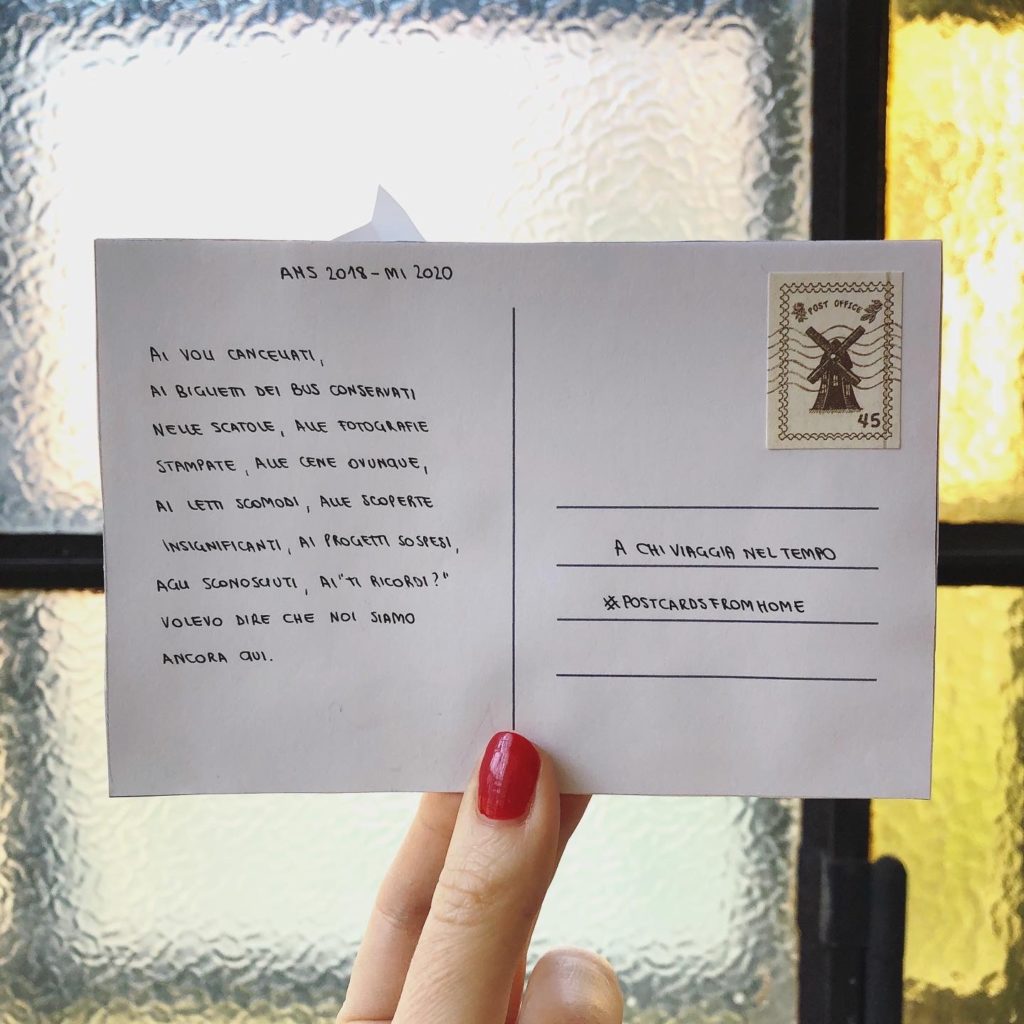 AMS 2018 - MI 2020
AI VOLI CANCELLATI,
AI BIGLIETTI DEI BUS CONSERVATI
NELLE SCATOLE, ALLE FOTOGRAFIE
STAMPATE, ALLE CENE OVUNQUE,
AI LETTI SCOMODI, ALLE SCOPERTE
INSIGNIFICANTI, AI PROGETTI SOSPESI,
AGLI SCONOSCIUTI, AI "TI RICORDI?"
VOLEVO DIRE CHE NOI SIAMO
ANCORA QUI.
POST OFFICE
45
A CHI VIAGGIA NEL TEMPO
#POSTCARDSFROMHOME